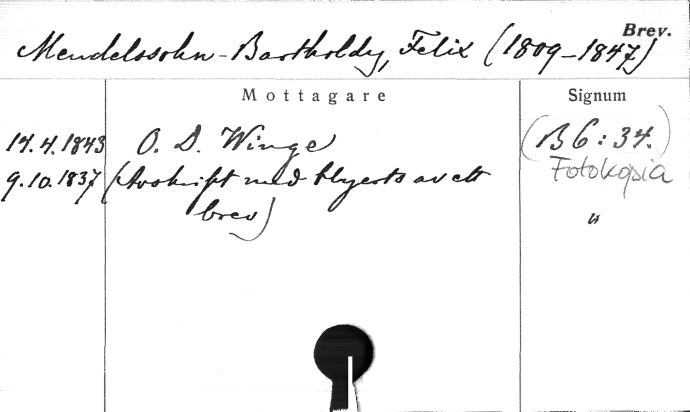 Brev.
Mendelssohn-Bartholdy, Felix (1809-1847)
Mottagare
Signum
14.4.1843 O. D. Winge (B 6:34.)
Fotokopia
9.10.1837 (Avskrift med blyerts av ett "
brev)